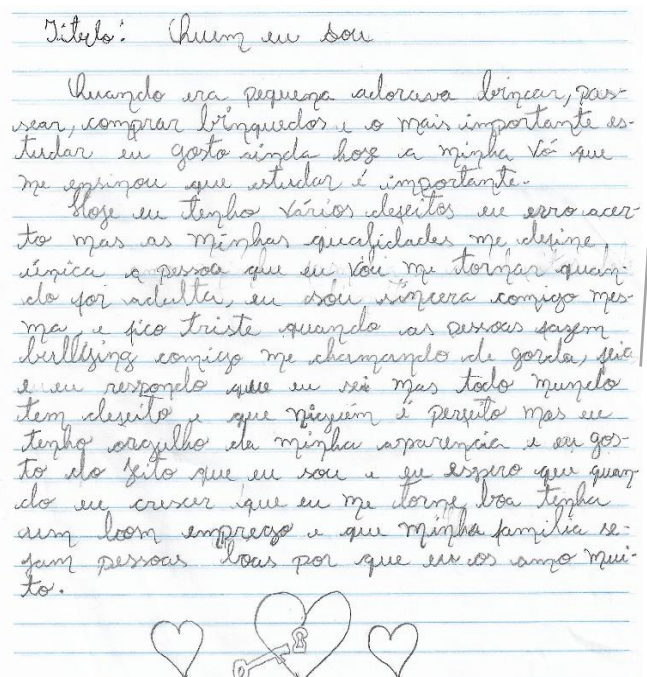 Título: Quem eu sou
Quando era pequena adorava brincar, pas-
sear, comprar brinquedos e o mais importante es-
tudar eu gosto ainda hoje a minha vó que
me ensinou que estudar é importante.
Hoje eu tenho vários defeitos eu erro acer-
to mas as minhas qualidades me define,
única a pessoa que eu vou me tornar quan-
do for adulta, eu sou sincera comigo mes-
ma, e fico triste quando as pessoas fazem
bullying comigo me chamando de gorda, feia
e eu respondo que eu sei mas todo mundo
tem defeito e que niguém é perfeito mas eu
tenho orgulho da minha aparencia e eu gos-
to do jeito que eu sou e eu espero que quan-
do eu crescer que eu me torne boa tenha
um bom emprego e que minha familia se-
jam pessoas boas por que eu os amo mui-
to.